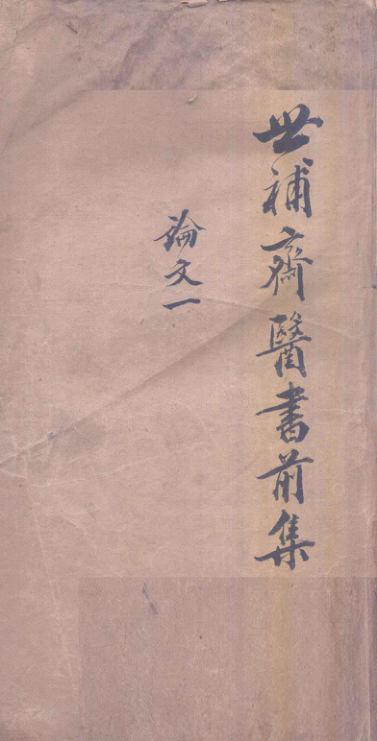 世補齋醫書前集
論文一